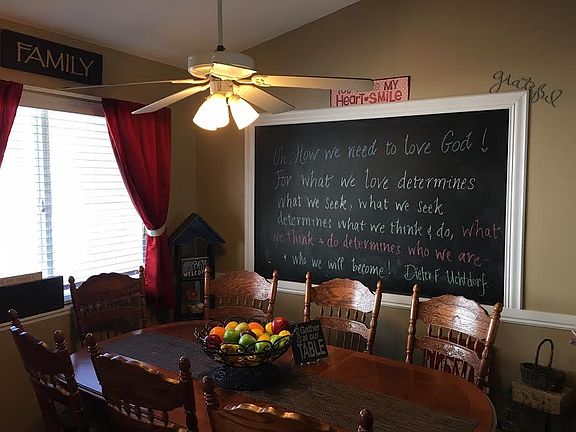 FAMILY
MY
Heart SMILE
grateful
Oh, How we need to love God!
For what we love determines
what we seek, what we seek
determines what we think & do, what
we think & do determines who we are -
& who we will become! Dieter F. Uchtdorf
WELCOME
Gather
at our
TABLE